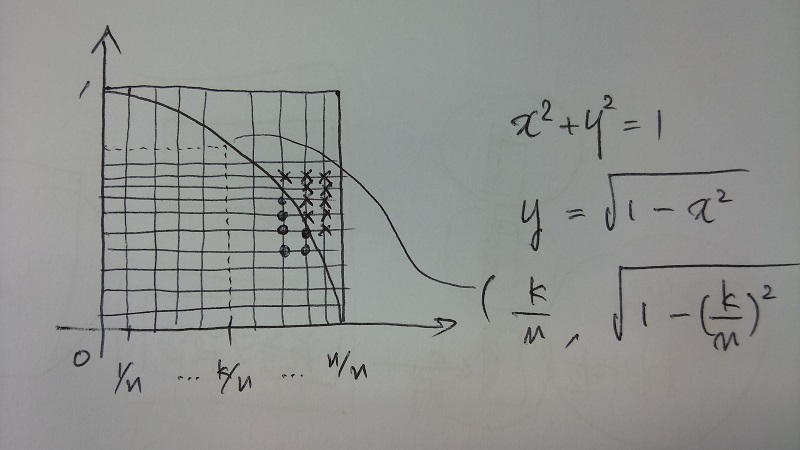 1
0
1/n ... k/n ... n/n
x² + y² = 1
y = √(1 - x²)
( k/n, √(1 - (k/n)²)